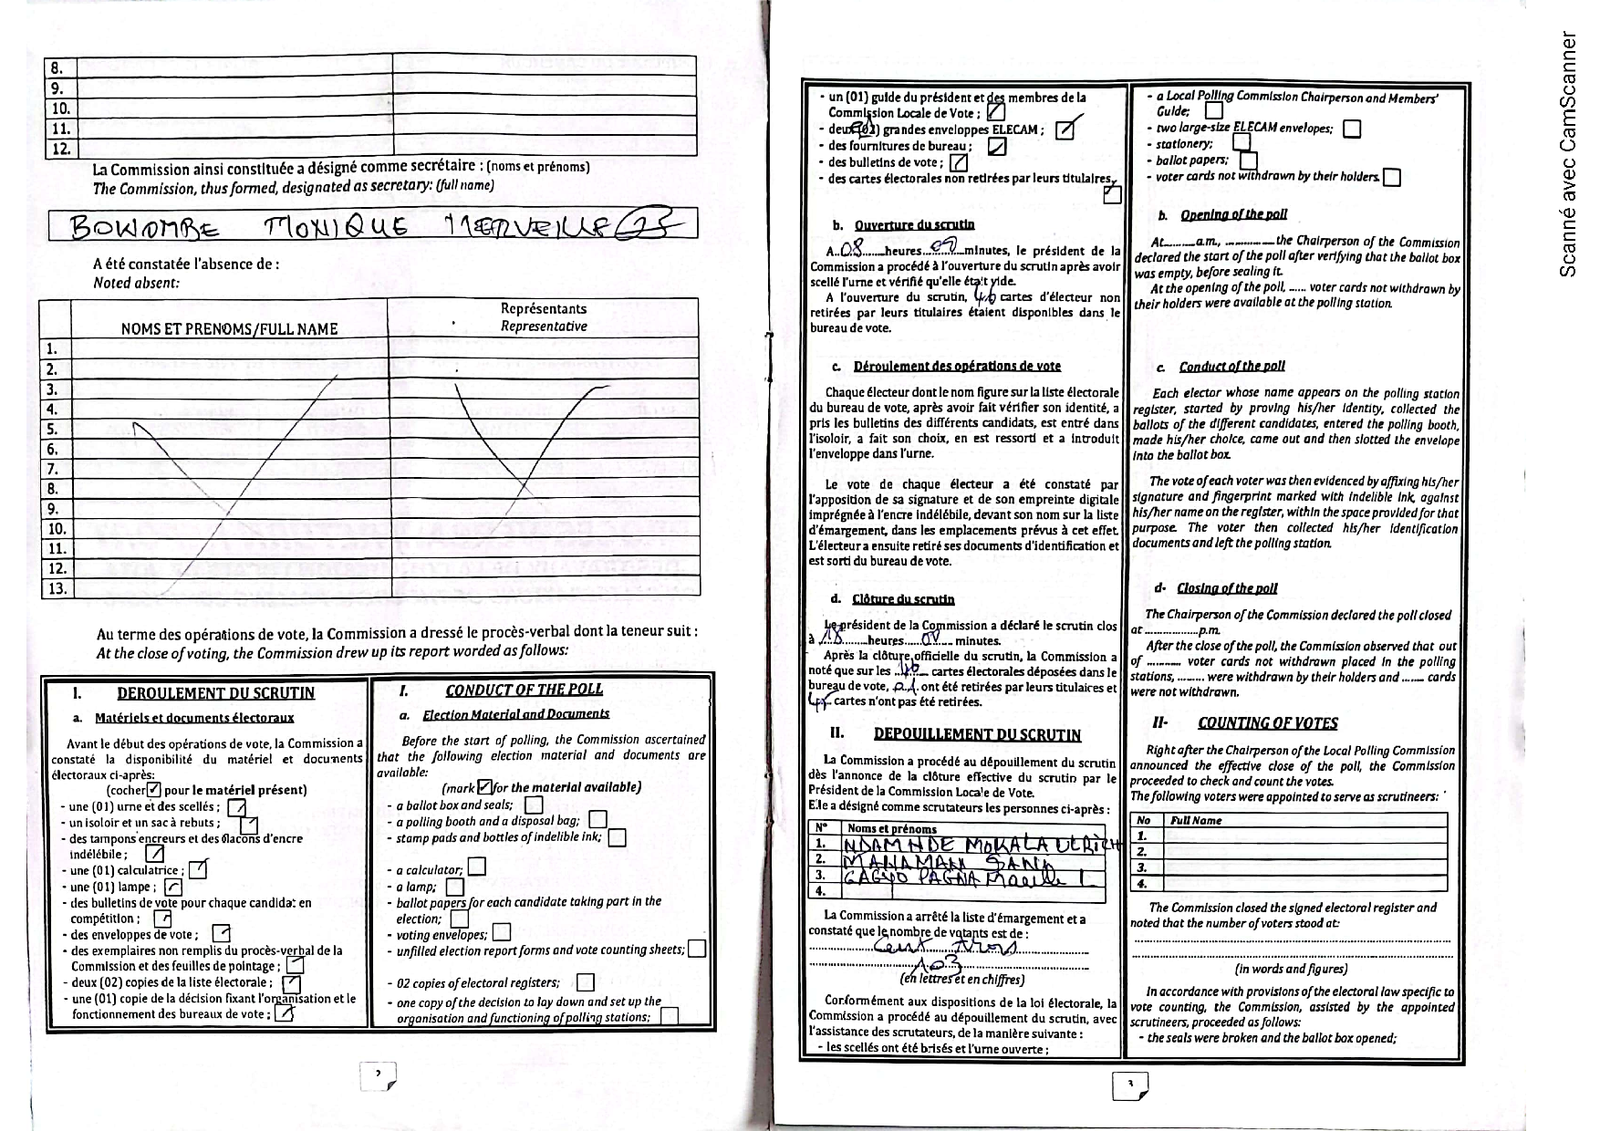 8.
9.
10.
11.
12.
La Commission ainsi constituée a désigné comme secrétaire : (noms et prénoms)
The Commission, thus formed, designated as secretary: (full name)
BOWOMBE MONIQUE MERVEILLE
A été constatée l'absence de :
Noted absent:
NOMS ET PRENOMS/FULL NAME
Représentants
Representative
1.
2.
3.
4.
5.
6.
7.
8.
9.
10.
11.
12.
13.
Au terme des opérations de vote, la Commission a dressé le procès-verbal dont la teneur suit :
At the close of voting, the Commission drew up its report worded as follows:
I. DEROULEMENT DU SCRUTIN
a. Matériels et documents électoraux
Avant le début des opérations de vote, la Commission a
constaté la disponibilité du matériel et documents
électoraux ci-après:
(cocher ✓ pour le matériel présent)
- une (01) urne et des scellés ;
- un isoloir et un sac à rebuts ;
- des tampons encreurs et des flacons d'encre
indélébile ;
- une (01) calculatrice ;
- une (01) lampe ;
- des bulletins de vote pour chaque candidat en
compétition ;
- des enveloppes de vote ;
- des exemplaires non remplis du procès-verbal de la
Commission et des feuilles de pointage ;
- deux (02) copies de la liste électorale ;
- une (01) copie de la décision fixant l'organisation et le
fonctionnement des bureaux de vote ;
I. CONDUCT OF THE POLL
a. Election Material and Documents
Before the start of polling, the Commission ascertained
that the following election material and documents are
available:
(mark ✓ for the material available)
- a ballot box and seals;
- a polling booth and a disposal bag;
- stamp pads and bottles of indelible ink;
- a calculator;
- a lamp;
- ballot papers for each candidate taking part in the
election;
- voting envelopes;
- unfilled election report forms and vote counting sheets;
- 02 copies of electoral registers;
- one copy of the decision to lay down and set up the
organisation and functioning of polling stations;
2
- un (01) guide du président et des membres de la
Commission Locale de Vote ;
- deux (02) grandes enveloppes ELECAM ;
- des fournitures de bureau ;
- des bulletins de vote ;
- des cartes électorales non retirées par leurs titulaires,
b. Ouverture du scrutin
A..08......heures..09..minutes, le président de la
Commission a procédé à l'ouverture du scrutin après avoir
scellé l'urne et vérifié qu'elle était vide.
A l'ouverture du scrutin, 46 cartes d'électeur non
retirées par leurs titulaires étaient disponibles dans le
bureau de vote.
c. Déroulement des opérations de vote
Chaque électeur dont le nom figure sur la liste électorale
du bureau de vote, après avoir fait vérifier son identité, a
pris les bulletins des différents candidats, est entré dans
l'isoloir, a fait son choix, en est ressorti et a introduit
l'enveloppe dans l'urne.
Le vote de chaque électeur a été constaté par
l'apposition de sa signature et de son empreinte digitale
imprégnée à l'encre indélébile, devant son nom sur la liste
d'émargement, dans les emplacements prévus à cet effet.
L'électeur a ensuite retiré ses documents d'identification et
est sorti du bureau de vote.
d. Clôture du scrutin
Le président de la Commission a déclaré le scrutin clos
à 18......heures............ minutes.
Après la clôture officielle du scrutin, la Commission a
noté que sur les ..46.... cartes électorales déposées dans le
bureau de vote, 01 ont été retirées par leurs titulaires et
45 cartes n'ont pas été retirées.
II. DEPOUILLEMENT DU SCRUTIN
La Commission a procédé au dépouillement du scrutin
dès l'annonce de la clôture effective du scrutin par le
Président de la Commission Locale de Vote.
Elle a désigné comme scrutateurs les personnes ci-après :
N° Noms et prénoms
1. NDAMNDE MOKALA ULRICH
2. MANAMAN SANA
3. GAGYO PAGNA
4.
La Commission a arrêté la liste d'émargement et a
constaté que le nombre de votants est de :
Cent trois
103
(en lettres et en chiffres)
Conformément aux dispositions de la loi électorale, la
Commission a procédé au dépouillement du scrutin, avec
l'assistance des scrutateurs, de la manière suivante :
- les scellés ont été brisés et l'urne ouverte ;
- a Local Polling Commission Chairperson and Members'
Guide;
- two large-size ELECAM envelopes;
- stationery;
- ballot papers;
- voter cards not withdrawn by their holders.
b. Opening of the poll
At..........a.m., ............... the Chairperson of the Commission
declared the start of the poll after verifying that the ballot box
was empty, before sealing it.
At the opening of the poll, ...... voter cards not withdrawn by
their holders were available at the polling station.
c. Conduct of the poll
Each elector whose name appears on the polling station
register, started by proving his/her identity, collected the
ballots of the different candidates, entered the polling booth,
made his/her choice, came out and then slotted the envelope
into the ballot box.
The vote of each voter was then evidenced by affixing his/her
signature and fingerprint marked with indelible ink, against
his/her name on the register, within the space provided for that
purpose. The voter then collected his/her identification
documents and left the polling station.
d- Closing of the poll
The Chairperson of the Commission declared the poll closed
at ..................p.m.
After the close of the poll, the Commission observed that out
of .......... voter cards not withdrawn placed in the polling
stations, ......... were withdrawn by their holders and ....... cards
were not withdrawn.
II- COUNTING OF VOTES
Right after the Chairperson of the Local Polling Commission
announced the effective close of the poll, the Commission
proceeded to check and count the votes.
The following voters were appointed to serve as scrutineers:
No Full Name
1.
2.
3.
4.
The Commission closed the signed electoral register and
noted that the number of voters stood at:
(in words and figures)
In accordance with provisions of the electoral law specific to
vote counting, the Commission, assisted by the appointed
scrutineers, proceeded as follows:
- the seals were broken and the ballot box opened;
3
Scanné avec CamScanner